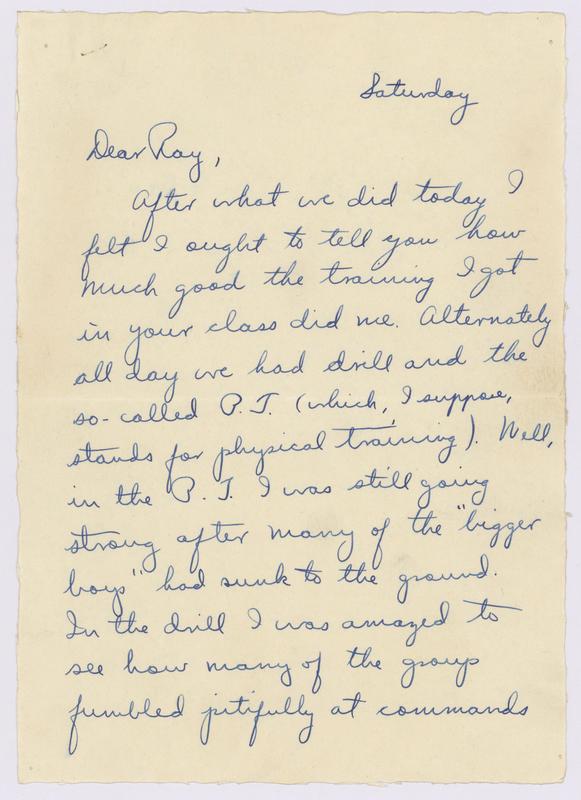 Saturday
Dear Ray,
After what we did today I
felt I ought to tell you how
much good the training I got
in your class did me. Alternately
all day we had drill and the
so-called P.T. (which, I suppose,
stands for physical training). Well,
in the P.T. I was still going
strong after many of the "bigger
boys" had sunk to the ground.
In the drill I was amazed to
see how many of the group
fumbled pitifully at commands